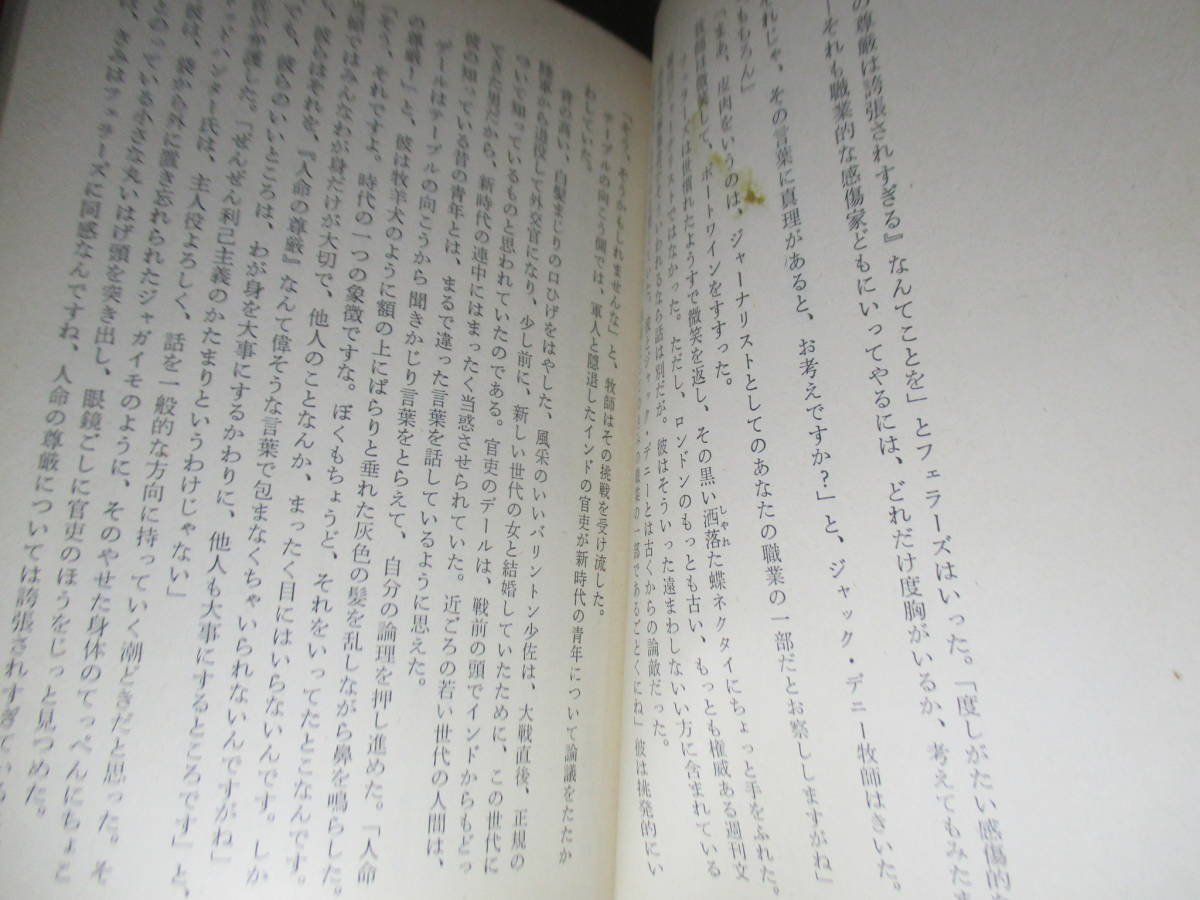 の尊厳は誇張されすぎる』なんてことを」とフェラーズはいった。「度しがたい感傷的な
ーそれも職業的な感傷家どもにいってやるには、どれだけ度胸がいるか、考えてもみたま
それじゃ、その言葉に真理があると、お考えですか？」と、ジャック・デニー牧師はきいた。
もちろん」
「まあ、皮肉をいうのは、ジャーナリストとしてのあなたの職業の一部だとお察ししますがね」
牧師は微笑して、ポートワインをすすった。
フェラーズは世慣れたようすで微笑を返し、その黒い洒落た蝶ネクタイにちょっと手をふれた。
しゃれ
ではなかった。ただし、ロンドンのもっとも古い、もっとも権威ある週刊文
いわれるなら話は別だが。彼はそういった遠まわしないい方に含まれている
ジャック・デニーとは古くからの論敵だった。
の職業の一部であるごとくにね」彼は挑発的にい
「そう、そうかもしれませんな」と、牧師はその挑戦を受け流した。
テーブルの向こう側では、軍人と隠退したインドの官吏が新時代の青年について論議をたたか
わしていた。
背の高い、白髪まじりの口ひげをはやした、風采のいいバリントン少佐は、大戦直後、正規の
陸軍から退役して外交官になり、少し前に、新しい世代の女と結婚していたために、この世代に
ついて知っているものと思われていたのである。官吏のデールは、戦前の頭でインドからもどっ
てきた男だから、新時代の連中にはまったく当惑させられていた。近ごろの若い世代の人間は、
彼の知っている昔の青年とは、まるで違った言葉を話しているように思えた。
デールはテーブルの向こうから聞きかじり言葉をとらえて、自分の論理を押し進めた。「人命
の尊厳！」と、彼は牧羊犬のように額の上にぱらりと垂れた灰色の髪を乱しながら鼻を鳴らした。
「そう、それですよ。時代の一つの象徴ですな。ぼくもちょうど、それをいってたとこなんです。
らはみんなわが身だけが大切で、他人のことなんか、まったく目にはいらないんです。しか
し、彼らはそれを、『人命の尊厳』なんて偉そうな言葉で包まなくちゃいられないんですがね」
でも、彼らのいいところは、わが身を大事にするかわりに、他人も大事にするところです」と、
が弁護した。「ぜんぜん利己主義のかたまりというわけじゃない」
ッドハンター氏は、主人役よろしく、話を一般的な方向に持っていく潮どきだと思った。そ
は、袋から外に置き忘れられたジャガイモのように、そのやせた身体のてっぺんにちょこ
とのっている小さな丸いはげ頭を突き出し、眼鏡ごしに官吏のほうをじっと見つめた。
は、きみはフェラーズに同感なんですね、人命の尊厳については誇張されすぎている